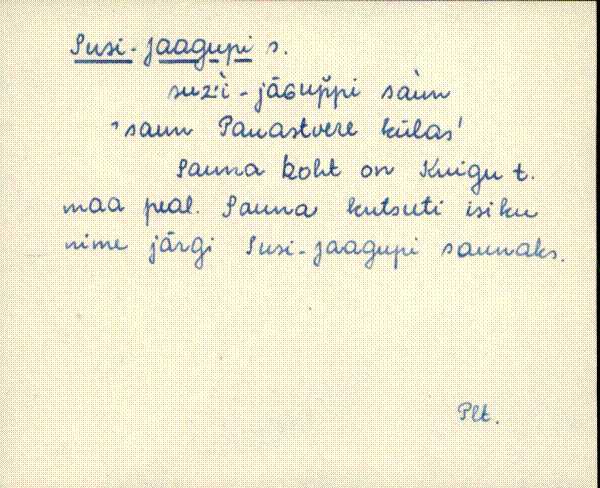 Susi-Jaagupi s.
suz̀i-jāGup̆pi sàun
'saun Pauastvere külas'
Sauna koht on Kuigu t.
maa peal. Sauna kutsuti isiku
nime järgi Susi-Jaagupi saunaks.
Plt.